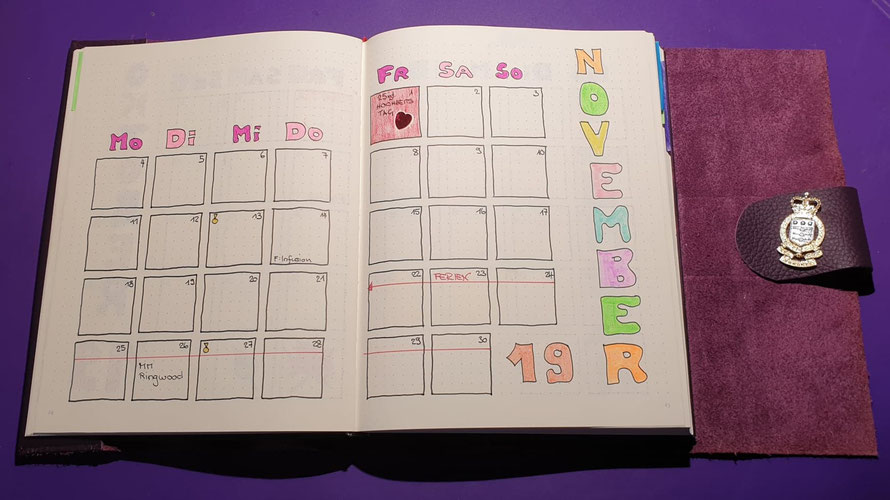 Mo Di Mi Do Fr Sa So
NOVEMBER
25ster 1
HOCHZEITS
TAG!
2
3
4 5 6 7 8 9 10
11 12 13 14 15 16 17
F: Infusion
18 19 20 21 22 23 24
FERIEN
25 26 27 28 29 30
MM
Ringwood
19